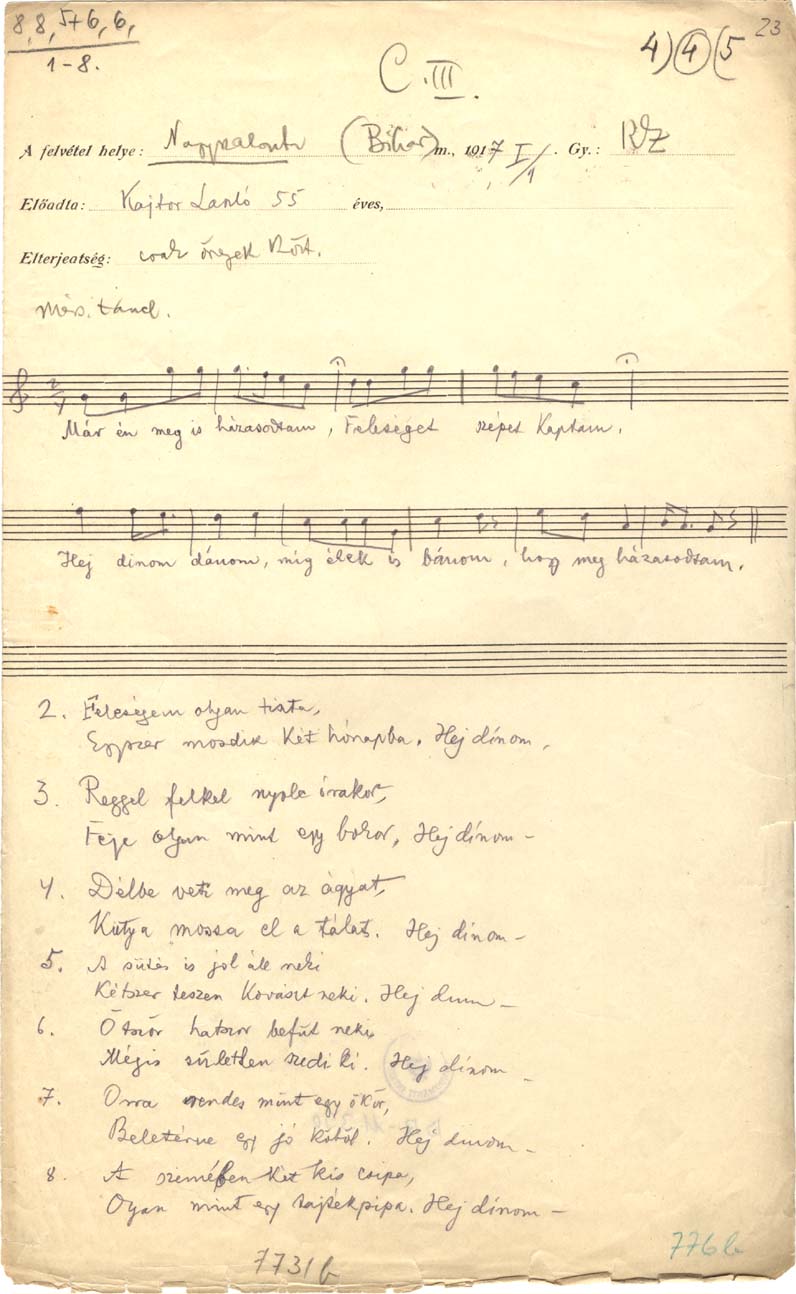 8, 8, 5+6, 6,
1-8.
4) 4 (5
23
C. III.
A felvétel helye: Nagyszalonta (Bihar) m., 1917 I/1. Gy.: KZ
Előadta: Kajtor Laszló 55 éves,
Elterjedtség: csak öregek közt.
tánd.
2/4
Már én meg is házasodtam, Feleséget szépet kaptam.
Hej dinom dánom, míg élek is bánom, hogy meg házasodtam.
2. Feleségem olyan tiszta,
Egyszer mosdik két hónapba. Hej dínom,
3. Reggel felkel nyolc órakor,
Feje olyan mint egy bokor, Hej dínom –
4. Délbe veti meg az ágyat,
Kutya mossa el a tálat. Hej dínom –
5. A sütés is jól áll neki
Kétszer teszen kovászt neki. Hej dinom –
6. Ötször hatszor befűt neki,
Mégis sületlen szedi ki. Hej dínom –
7. Orra rendes mint egy ökör,
Beletérne egy jó köböl. Hej dinom –
8. A szemében két kis csipa,
Olyan mint egy tajtékpipa. Hej dínom –
7731b
776b